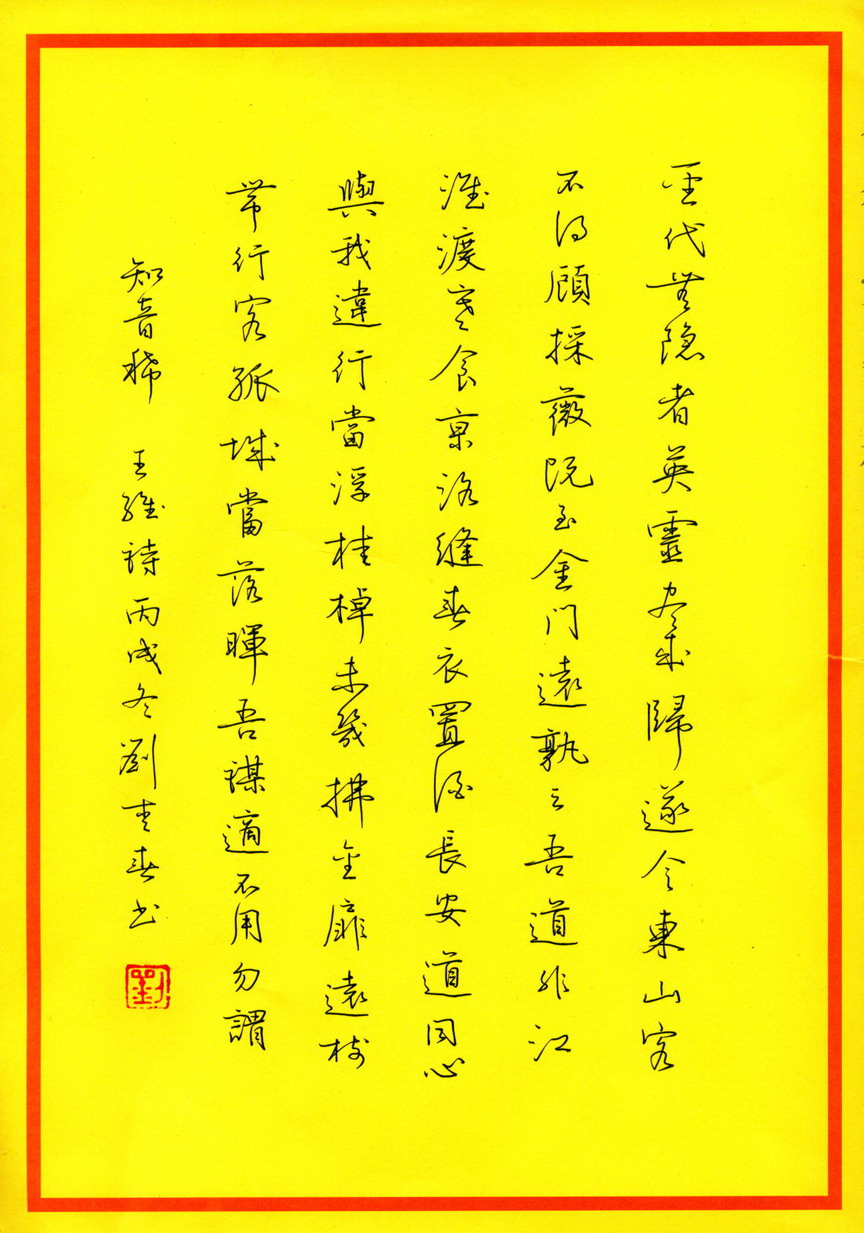 聖代無隐者英靈盡來歸遂令東山客
不得顧採薇既至金门遠孰云吾道非江
淮渡寒食京洛縫春衣置酒長安道同心
與我違行當浮桂棹未幾拂扉遠樹
帶行客孤城當落暉吾謀適不用勿謂
知音稀 王維詩丙戌冬劉春书
劉